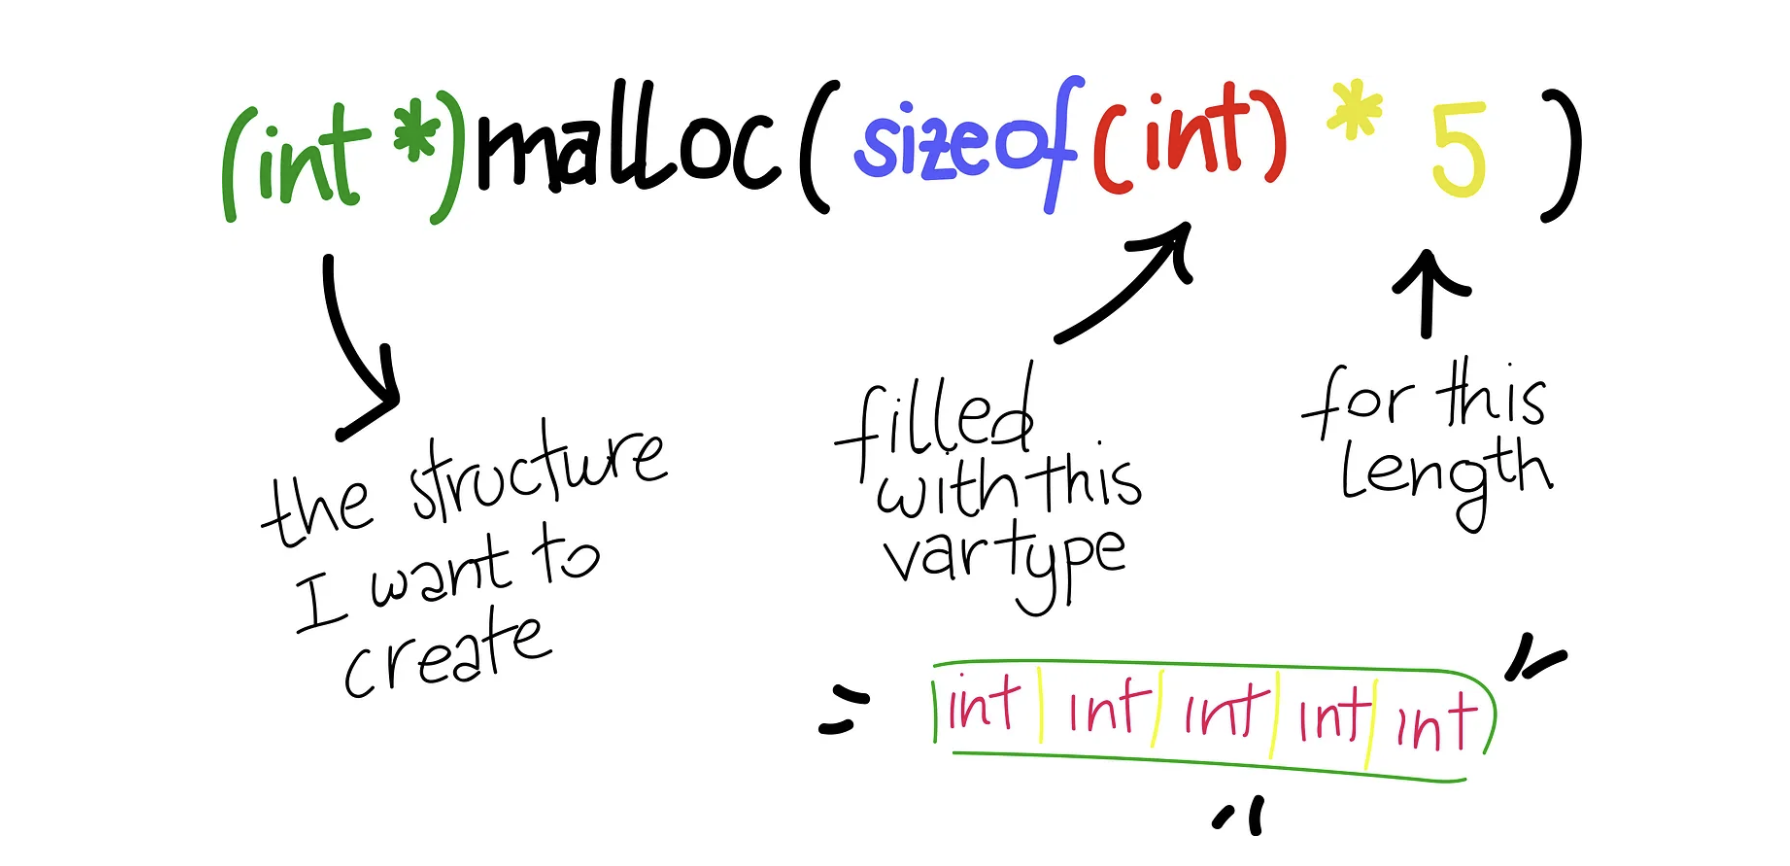 (int *)malloc( sizeof(int) * 5 )
the structure
I want to
create
filled
with this
var type
for this
length
int int int int int